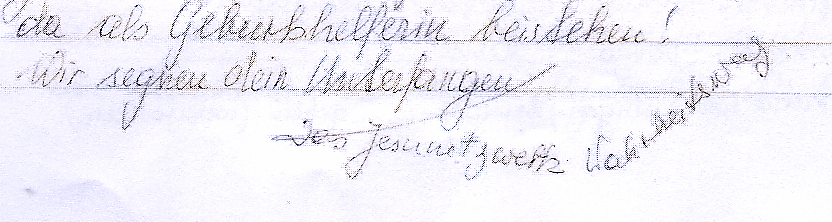 da als Geburtshelferin beistehen!
Wir segnen dein Unterfangen
Das Jesu netzwerk Wahrheitsweg